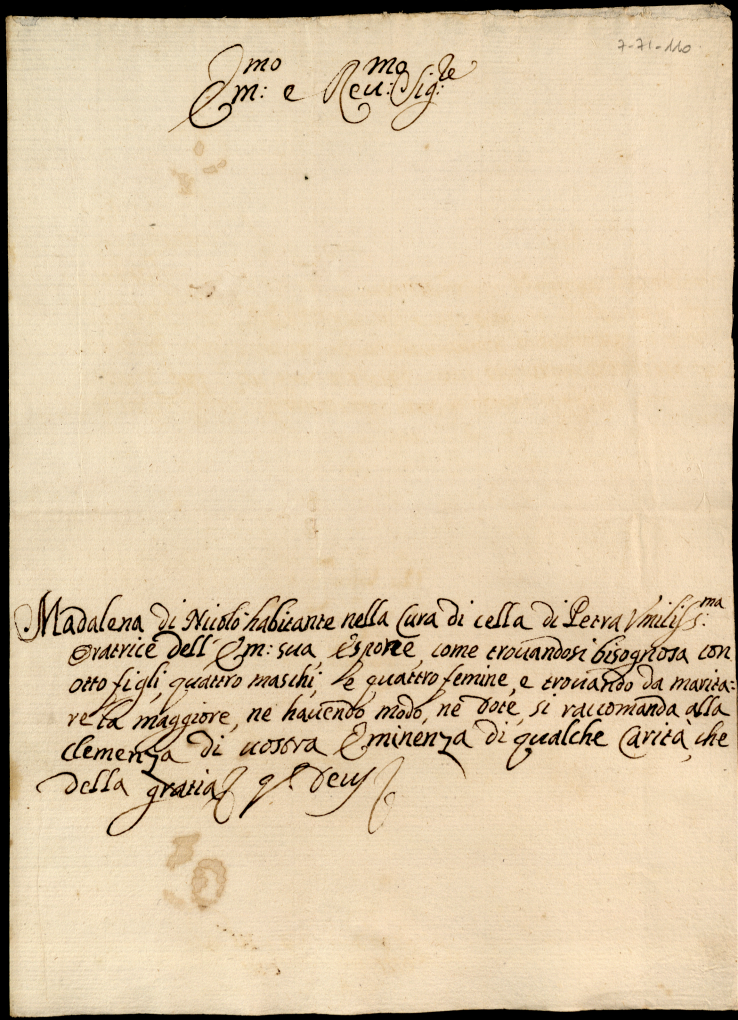 7-71-110
Em:mo e Reu:mo Sig:re
Madalena di Nicolò habitante nella Cura di cella di Petra Vmiliss:ma
Oratrice dell' Em: sua, espone, come trouandosi bisognosa con
otto figli, quattro maschi, e quattro femine, e trouando da marita=
re la maggiore, ne hauendo modo, ne dote, si raccomanda alla
clemenza di uostra Eminenza di qualche Carita, che
della gratia